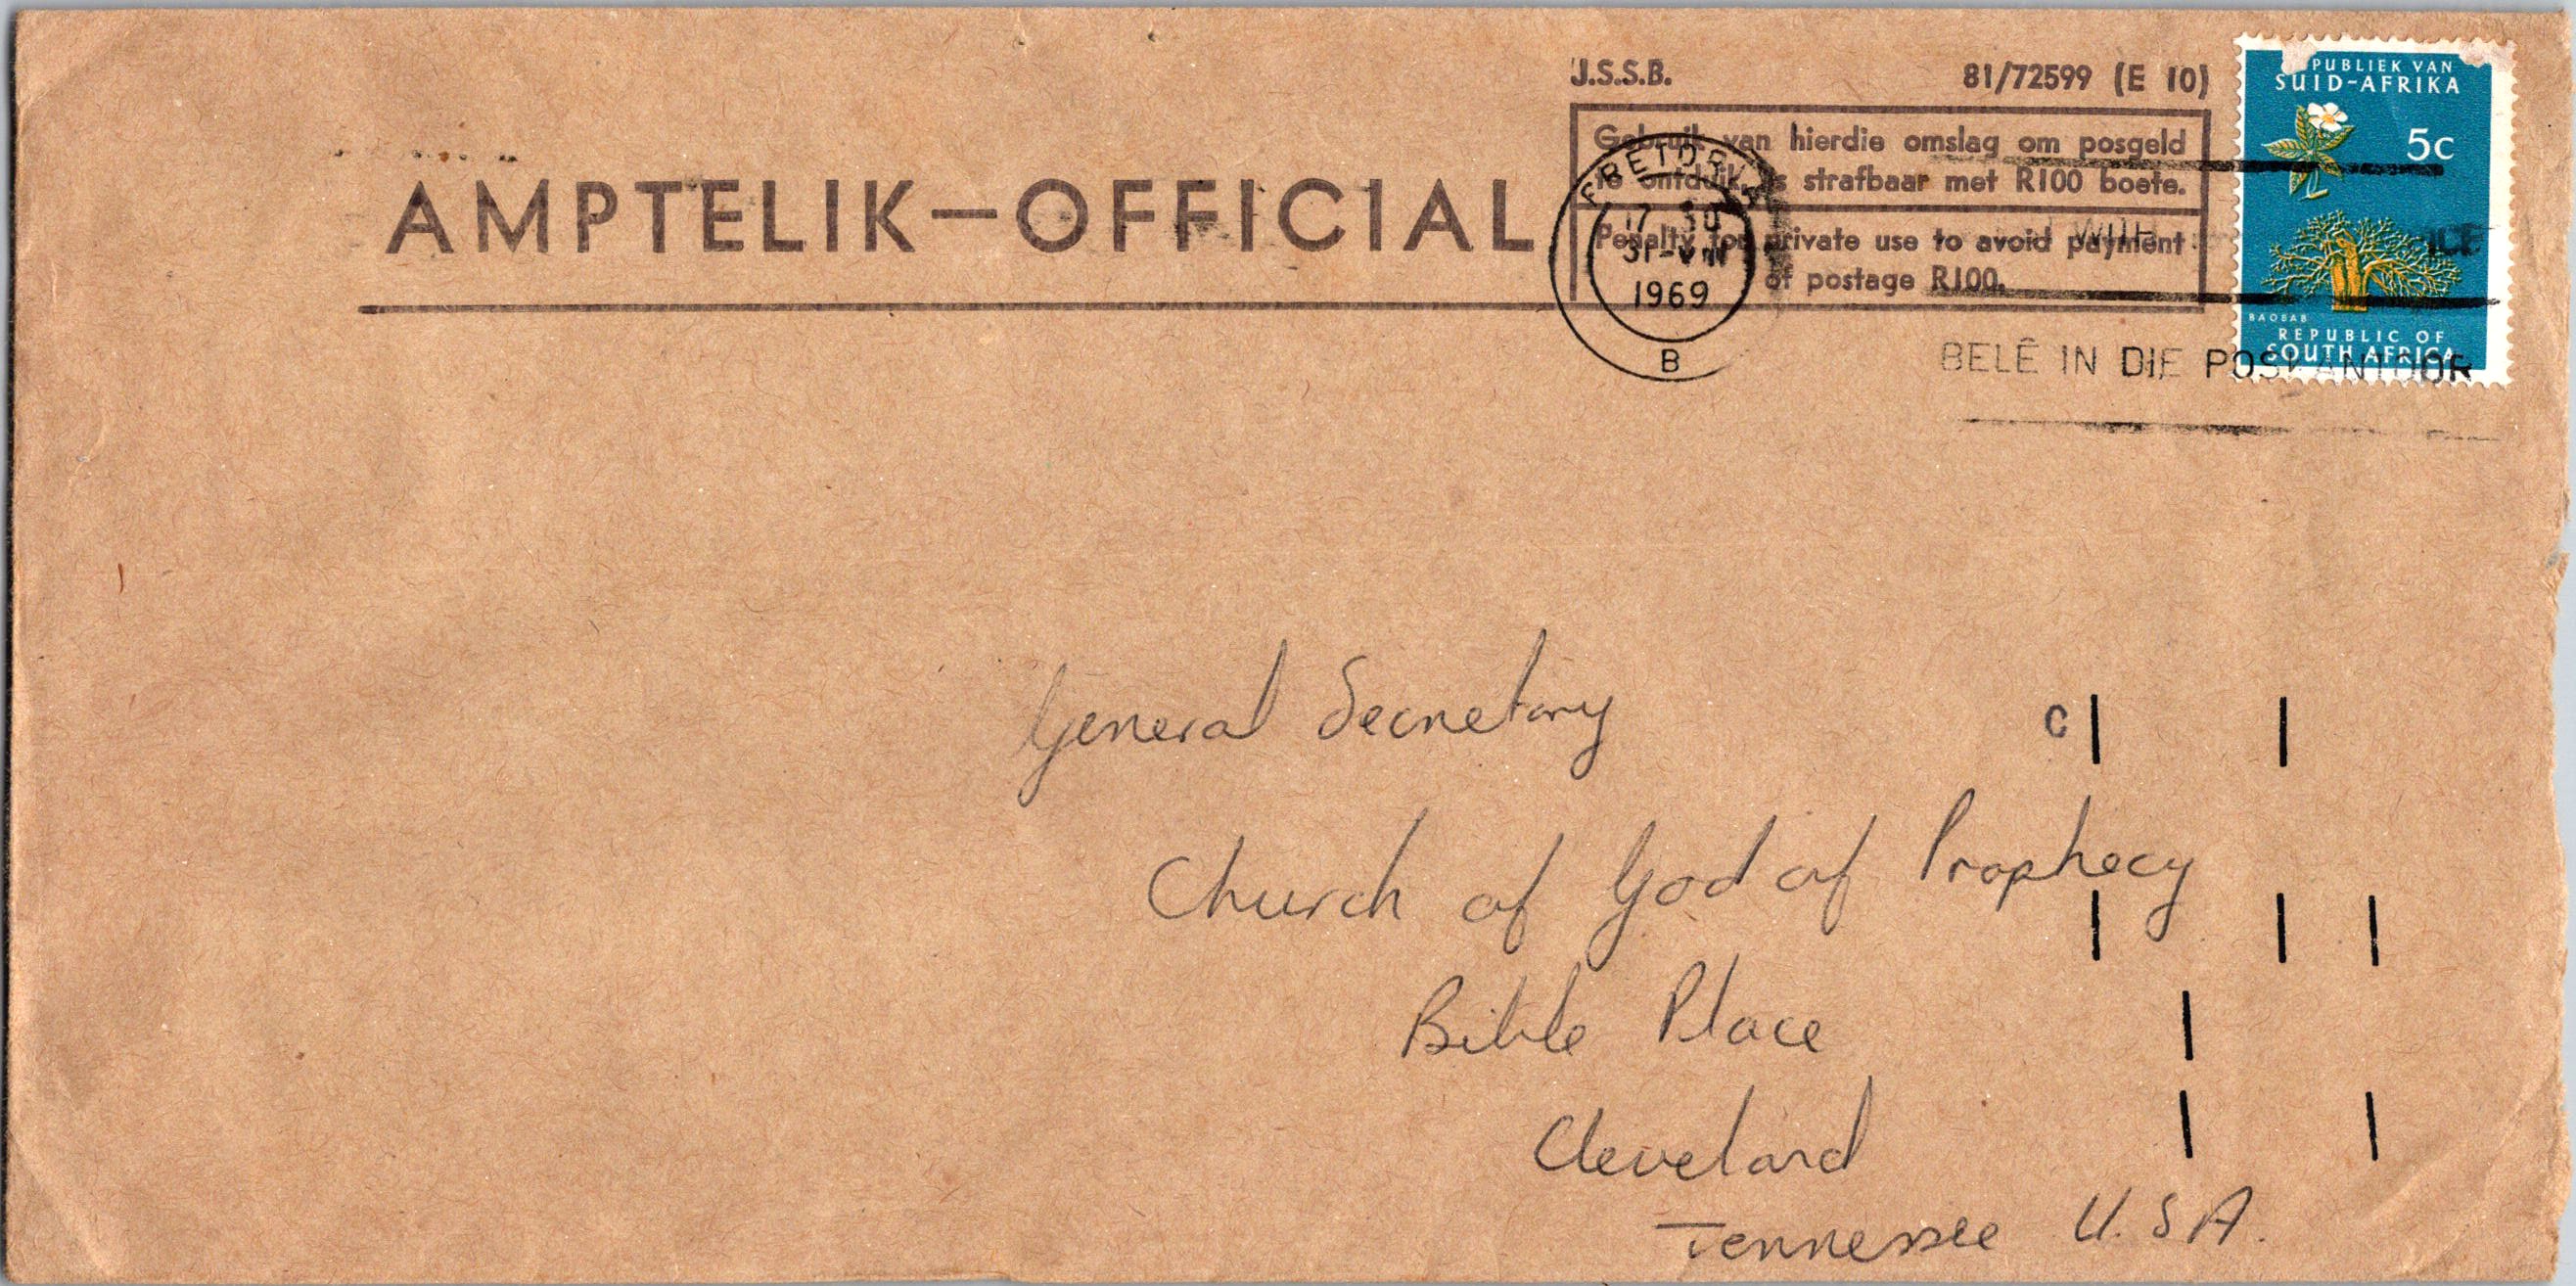 J.S.S.B. 81/72599 (E 10)
Gebruik van hierdie omslag om posgeld
te ontduik, is strafbaar met R100 boete.
Penalty for private use to avoid payment
of postage R100.
AMPTELIK—OFFICIAL
PRETORIA
17 30
31-VIII
1969
B
WITH
ICE
BELÊ IN DIE POSKANTOOR
REPUBLIEK VAN
SUID-AFRIKA
5c
BAOBAB
REPUBLIC OF
SOUTH AFRICA
General Secretary
C
Church of God of Prophecy
Bible Place
Cleveland
Tennessee U.S.A.